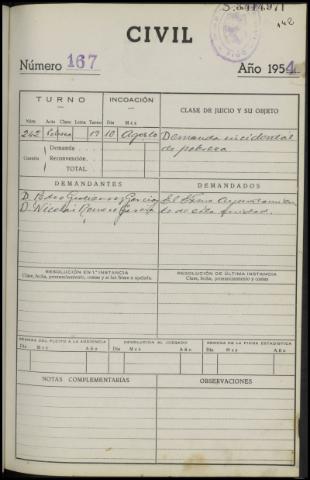 142
CIVIL
Número 167
Año 1954
TURNO INCOACIÓN CLASE DE JUICIO Y SU OBJETO
Núm. Acto Clase Letra Turno Día Mes
242 Pobreza 17 10 Agosto Demanda incidental
Cuantía Demanda: de pobreza
Reconvención:
TOTAL
DEMANDANTES DEMANDADOS
D. Pedro Gutierrez García El Excmo Ayuntamien
D. Nicolás Romero García to de esta ciudad.
RESOLUCIÓN EN 1.ª INSTANCIA RESOLUCIÓN DE ÚLTIMA INSTANCIA
Clase, fecha, pronunciamiento, costas y si fué firme o apelada. Clase, fecha, pronunciamiento y costas
REMESA DEL PLEITO A LA AUDIENCIA DEVOLUCIÓN AL JUZGADO REMESA DE LA FICHA ESTADÍSTICA
Día Mes Año Día Mes Año Día Mes Año
NOTAS COMPLEMENTARIAS OBSERVACIONES